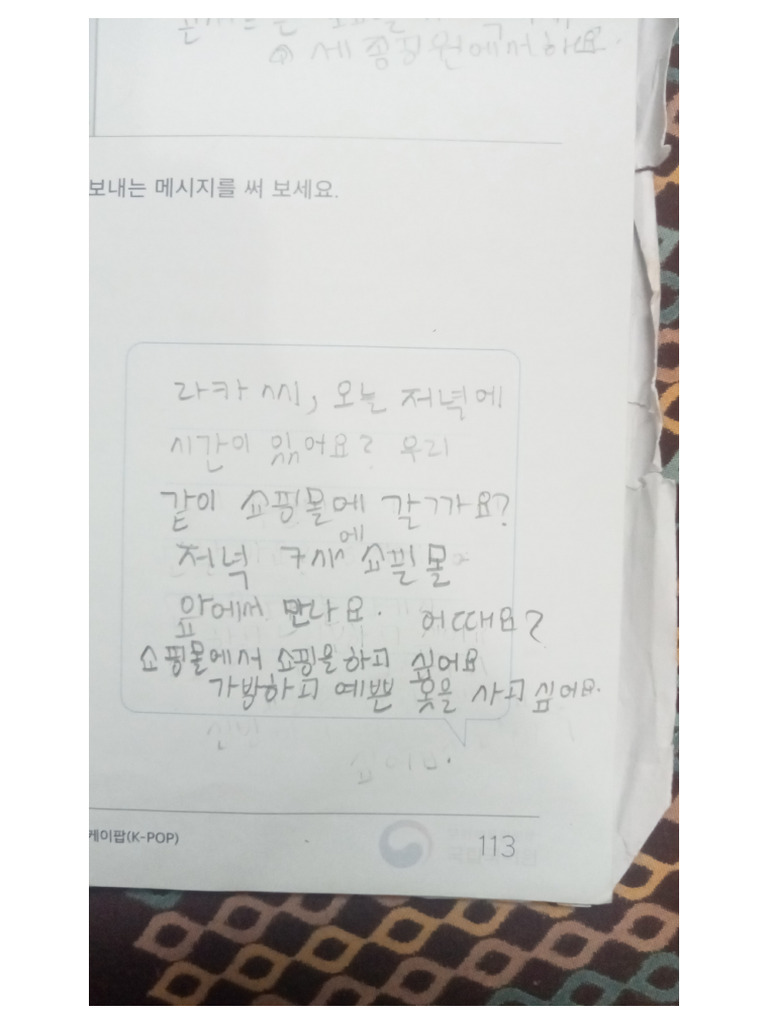 세종공원에서 하요.
보내는 메시지를 써 보세요.
라카 씨, 오늘 저녁에
시간이 있어요? 우리
같이 쇼핑몰에 갈까요?
저녁 7시에 쇼핑몰
앞에서 만나요. 어때요?
쇼핑몰에서 쇼핑을 하고 싶어요
가방하고 예쁜 옷을 사고 싶어요.
케이팝(K-POP)
113